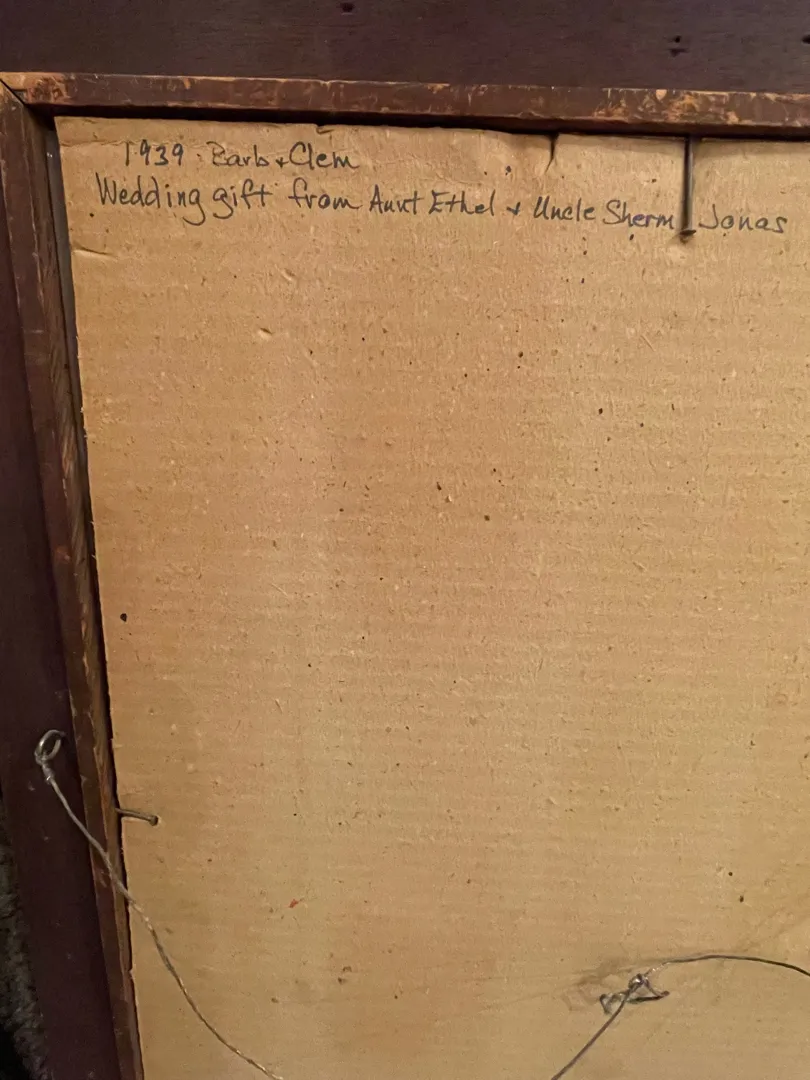 1939 · Barb + Clem
Wedding gift from Aunt Ethel + Uncle Sherm Jonas